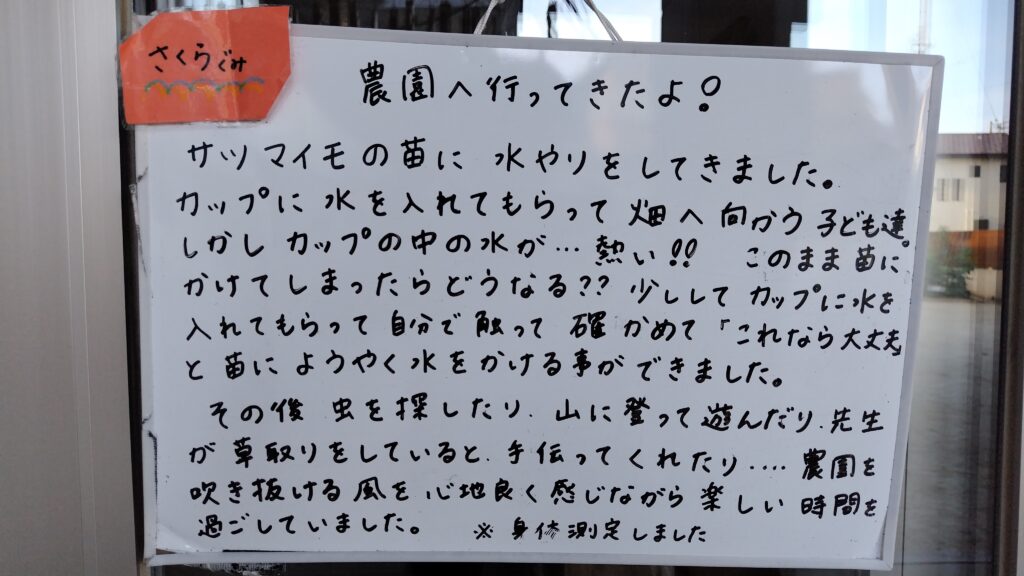 さくらぐみ
農園へ行ってきたよ!
サツマイモの苗に 水やりをしてきました。
カップに 水を入れてもらって 畑へ 向かう 子ども達。
しかし カップの中の水が… 熱い!! このまま苗に
かけてしまったらどうなる?? 少しして カップに水を
入れてもらって 自分で 触って 確かめて 「これなら大丈夫」
と 苗に ようやく水をかける事ができました。
その後 虫を探したり、山に登って遊んだり、先生
が 草取りをしていると、手伝ってくれたり‥‥ 農園を
吹き抜ける風を 心地良く 感じながら 楽しい 時間を
過ごしていました。 ※ 身体測定しました